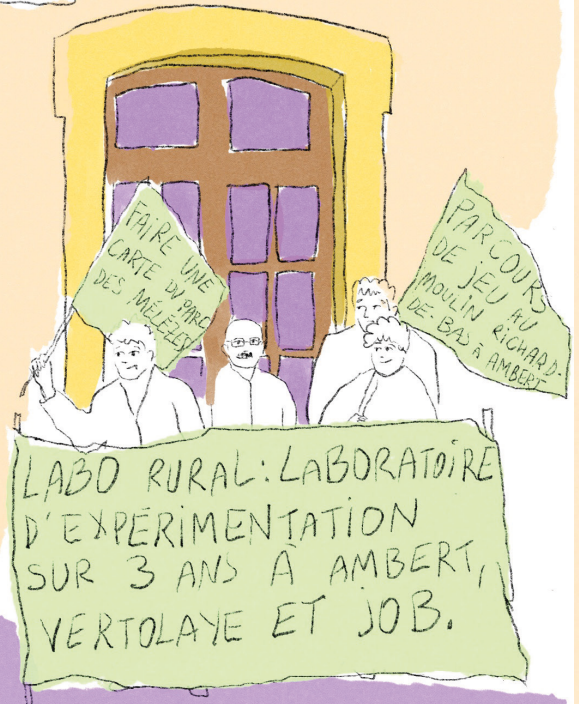 FAIRE UNE
CARTE DU PARC
DES MÉLÈZES
PARCOURS
DE JEU AU
MOULIN RICHARD-
DE-BAS À AMBERT
LABO RURAL: LABORATOIRE
D'EXPÉRIMENTATION
SUR 3 ANS À AMBERT,
VERTOLAYE ET JOB.